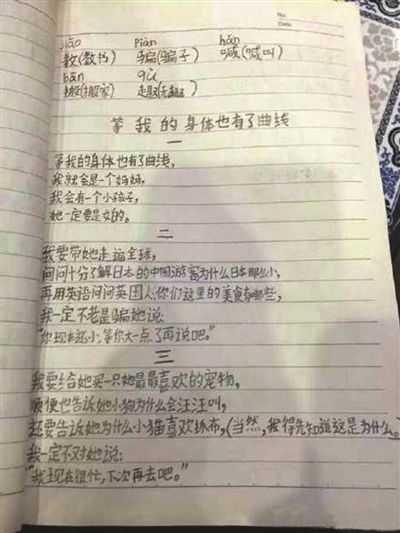 No
Date
jiāo piàn hǎn
教(教书) 骗(骗子) 喊(喊叫)
bān qù
搬(搬家) 趣(无趣)
等我的身体也有了曲线
一
等我的身体也有了曲线,
我就会是一个妈妈,
我会有一个小孩子,
她一定要是女的。
二
我要带她走遍全球,
问问十分了解日本的中国游客为什么日本那么小,
再用英语问问英国人:你们这里的美食有哪些,
我一定不老是骗她说:
"你现在还小,等你大一点了再说吧。"
三
我要给她买一只她最最喜欢的宠物,
顺便也告诉她小狗为什么会汪汪叫,
还要告诉她为什么小猫喜欢抓布,(当然,我得先知道这是为什么。)
我一定不对她说:
"我现在很忙,下次再去吧。"